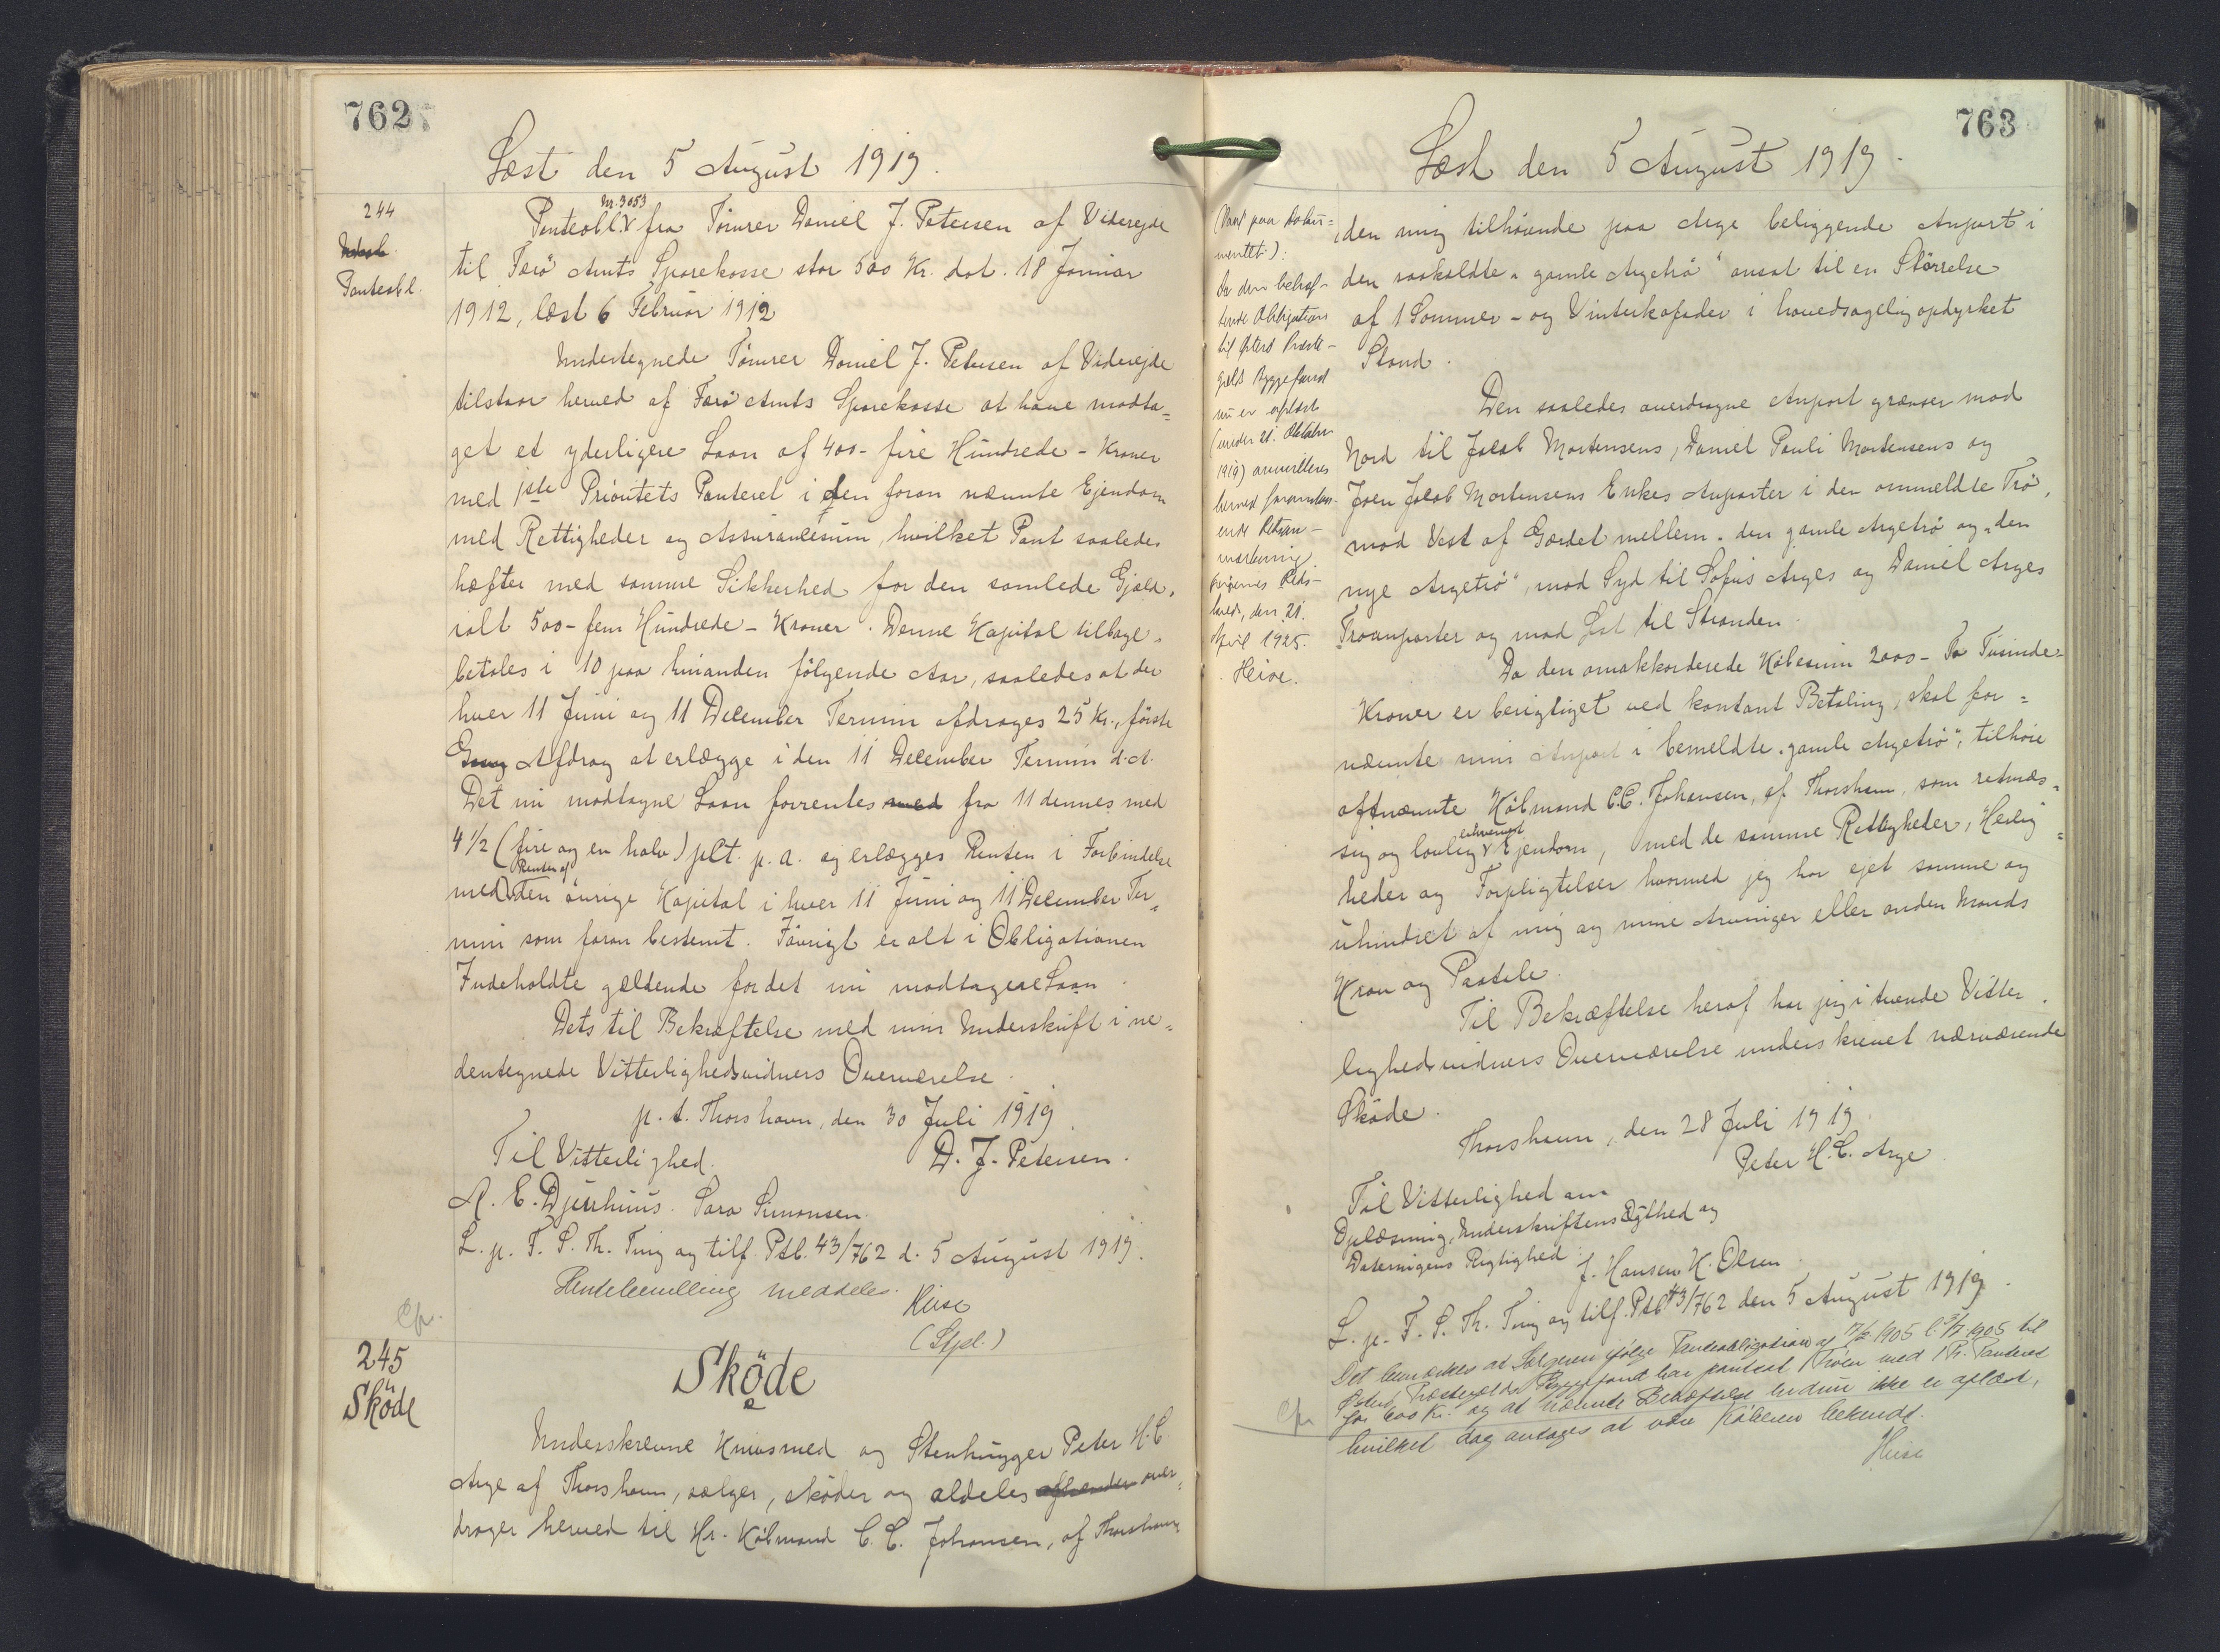 762
Læst den 5 August 1919.
244
Pantesbl.
Nr. 3053
Panteobl. v fra Tömrer Daniel J. Petersen af Viderejde
til Færö Amts Sparekasse stor 500 Kr. dat. 18 Januar
1912, læst 6 Februar 1912
Undertegnede Tömrer Daniel J. Petersen af Viderejde
tilstaar herved af Færö Amts Sparekasse at have modta=
get et yderligere Laan af 400 - fire Hundrede - Kroner
med 1ste Prioritets Panteret i den foran nævnte Ejendom
med Rettigheder og Assurancesum, hvilket Pant saaledes
hæfter med samme Sikkerhed for den samlede Gjæld,
ialt 500 - fem Hundrede - Kroner. Denne Kapital tilbage=
betales i 10 paa hinanden fölgende Aar, saaledes at der
hver 11 Juni og 11 December Termin afdrages 25 Kr., förste
Gang Afdrag at erlægge i den 11 December Termin d.A.
Det nu modtagne Laan forrentes med fra 11 dennes med
4 1/2 (fire og en halv) pCt. p.a. og erlægges Renten i Forbindelse
Renten af
med v den övrige Kapital i hver 11 Juni og 11 December Ter=
min som foran bestemt. Iövrigt er alt i Obligationen
Indeholdte gældende for det nu modtagne Laan.
Dets til Bekræftelse med min Underskrift i ne=
dentegnede Vitterlighedsvidners Overværelse.
p.t. Thorshavn, den 30 Juli 1919.
Til Vitterlighed. D. J. Petersen.
A. E. Djurhuus. Sara Simonsen.
L. p. F. S. Th. Ting og tilf. Ptb. 43/762 d. 5 August 1919.
Rentebevilling meddeles.
Heise
(Stpl.)
Cfr.
245
Sköde
Sköde
Underskrevne Knivsmed og Stenhugger Peter H.C.
Arge af Thorshavn, sælger, sköder og aldeles afhænder over=
drager herved til Hr. Kòbmand C. C. Johansen, af Thorshavn
763
Læst den 5 August 1919.
(Paa dokü=
mentet):
Da den behæf=
tende Obligation
til Østers Præste-
gælds Byggefond
nu er aflæst
(under 21. Oktober
1919) annulleres
herved foranstaa-
ende Retsan-
mærkning
Færøernes Reds-
kreds, den 21.
April 1925.
Heise.
den mig tilhörende paa Arge beliggende Anpart i
den saakaldte "gamle Argetrö" ansat til en Störrelse
af 1 Sommer- og Vinterkofoder i hovedsagelig opdyrket
Stand.
Den saaledes overdragne Anpart grænser mod
Nord til Jacob Mortensens, Daniel Pauli Mortensens og
Joen Jacob Mortensens Enkes Anparter i den ommeldte Trö,
mod Vest af Gærdet mellem "den gamle Argetrö og "den
nye Argetrö", mod Syd til Sofus Arges og Daniel Arges
Tröanparter og mod Øst til Stranden.
Da den omakkorderede Köbesum 2000 - To Tusinde -
Kroner er berigtiget ved kontant Betaling, skal for=
nævnte min Anpart i bemeldte "gamle Argetrö", tilhöre
oftnævnte Köbmand C.C. Johansen, af Thorshavn, som retmæs=
erhvervet
sig og lovlig v Ejendom, med de samme Rettigheder, Herlig=
heder og Forpligtelser hvormed jeg har ejet samme og
uhindret af mig og mine Arvinger eller anden Mands
Krav og Paatale.
Til Bekræftelse heraf har jeg i tvende Vitter=
lighedsvidners Overværelse underskrevet nærværende
Sköde.
Thorshavn, den 28 Juli 1919.
Peter H. C. Arge
Til Vitterlighed om
Oplæsning, Underskriftens Ægthed og
Dateringens Rigtighed
J. Hansen K. Olsen
L. p. F. S. Th. Ting og tilf. Ptb 43/762 den 5 August 1919.
Det bemærkes at Sælgeren ifölge Panteobligation af 17/2 1905 l. 3/7 1905 til
Østerö Præstegælds Byggefond har pantsat Tröen med 1 Pr. Panteret
for 600 Kr. og at nævnte Behæftelse endnu ikke er aflæst,
hvilket dog antages at være Köberen bekendt.
Heise
Cfr